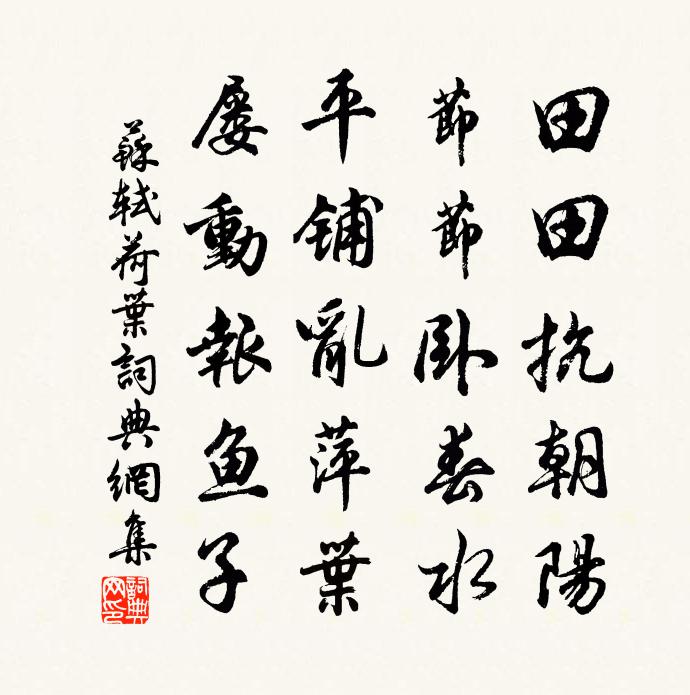 田田抗朝陽
節節卧春水
平铺亂萍葉
屡動報鱼子
蘇軾荷葉詞典網集
詞典
网印